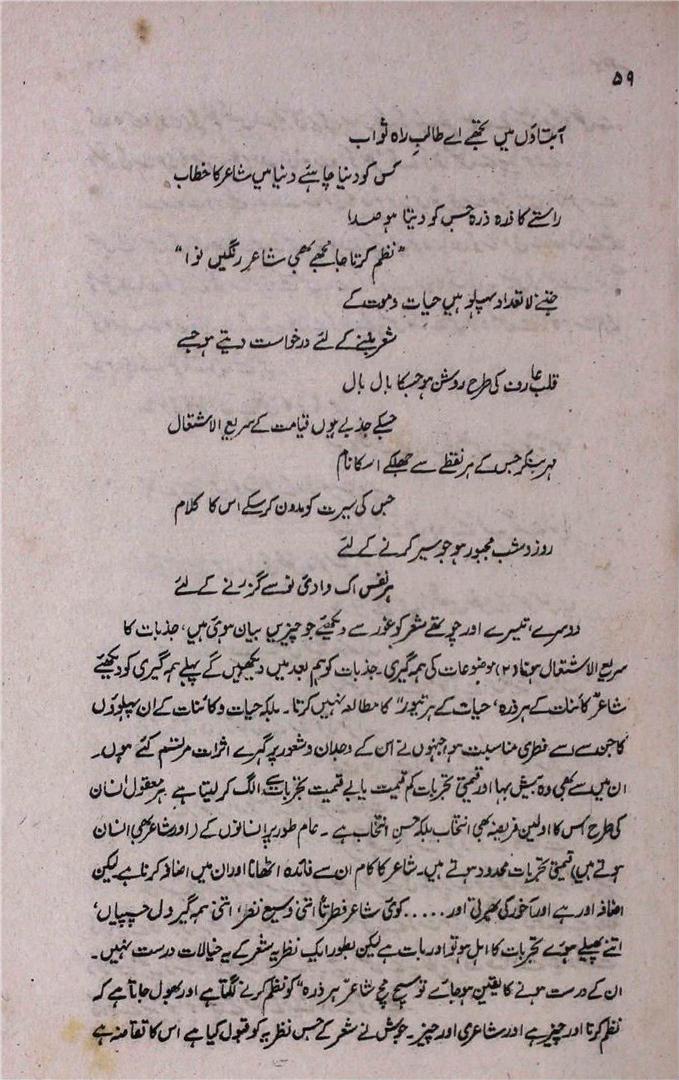 ۵۹
آ بتاؤں میں تجھے اے طالبِ راہ ثواب
کس کو دنیا چاہئے دنیا میں شاعر کا خطاب
راستے کا ذرہ ذرہ جس کو دیتا ہو صدا
"نظم کرتا جا مجھے بھی شاعرِ رنگیں نوا"
جتنے لا تعداد پہلو ہیں حیات و موت کے
شعر بننے کے لئے درخواست دیتے ہو جسے
قلب عارف کی طرح روشن ہو جسکا بال بال
جسکے جذبے ہوں قیامت کے سریع الاشتعال
مہر بنکر جس کے ہر نقطے سے جھلکے اسکا نام
جس کی سیرت کو مدون کر سکے اس کا کلام
روز و شب مجبور ہو جو سیر کرنے کے لئے
ہر نفس اک وادیٔ نو سے گزرنے کے لئے
دوسرے، تیسرے اور چوتھے شعر کو غور سے دیکھئے جو چیزیں بیان ہوئی ہیں، جذبات کا
سریع الاشتعال ہونا (۲) موضوعات کی ہمہ گیری۔ جذبات کو ہم بعد میں دیکھیں گے پہلے ہمہ گیری کو دیکھئے
شاعر کائنات کے ہر ذرہ، حیات کے ہر تیور" کا مطالعہ نہیں کرتا۔ بلکہ حیات و کائنات کے ان پہلوؤں
کا جن سے اسے فطری مناسبت ہو، جنہوں نے اس کے وجدان و شعور پر گہرے اثرات مرتسم کئے ہوں۔
ان میں سے بھی وہ بیش بہا اور قیمتی تجربات کم قیمت یا بے قیمت تجربات سے الگ کر لیتا ہے ہر معقول انسان
کی طرح اس کا اولین فریضہ بھی انتخاب بلکہ حسنِ انتخاب ہے۔ عام طور پر انسانوں کے (اور شاعر بھی انسان
ہوتے ہیں) قیمتی تجربات محدود ہوتے ہیں۔ شاعر کا کام ان سے فائدہ اٹھانا اور ان میں اضافہ کرنا ہے لیکن
اضافہ اور ہے اور آخور کی بھرتی اور..... کوئی شاعر فطرتاً اتنی وسیع نظر، اتنی ہمہ گیر دل چسپیاں،
اتنے پھیلے ہوئے تجربات کا اہل ہو تو اور بات ہے لیکن بطور ایک نظریہ شعر کے یہ خیالات درست نہیں۔
ان کے درست ہونے کا یقین ہو جائے تو سچ مچ شاعر "ہر ذرہ" کو نظم کرنے لگتا ہے اور بھول جاتا ہے کہ
نظم کرنا اور چیز ہے اور شاعری اور چیز۔ جوش نے شعر کے جس نظریہ کو قبول کیا ہے اس کا تقاضہ ہے